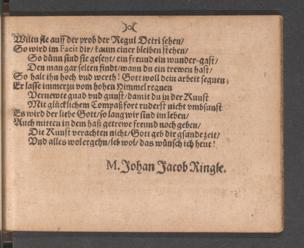 Wilen sie auff der prob der Regul Detri sehen/
So wird im Facit dir/ kaum einer bleiben stehen/
So dünn sind sie geseyt/ ein freund ein wunder-gast/
Den man gar selten findt/ wann du ein trewen hast/
So halt ihn hoch vnd werth! Gott woll dein arbeit segnen;
Er lasse immerzu vom hohen Himmel regnen
Vernewte gnad vnd gunst/ damit du in der Kunst
Mit glücklichem Compaß fort ruderst nicht vmbsunst
Es wird der liebe Gott/ so lang wir sind im leben/
Auch mitten in dem haß getrewe freund noch geben/
Die Kunst verachten nicht/ Gott geb dir gsunde zeit/
Vnd alles wol ergehn/ ich wol/ das wünsch ich heut!
M. Johan Jacob Ringle.